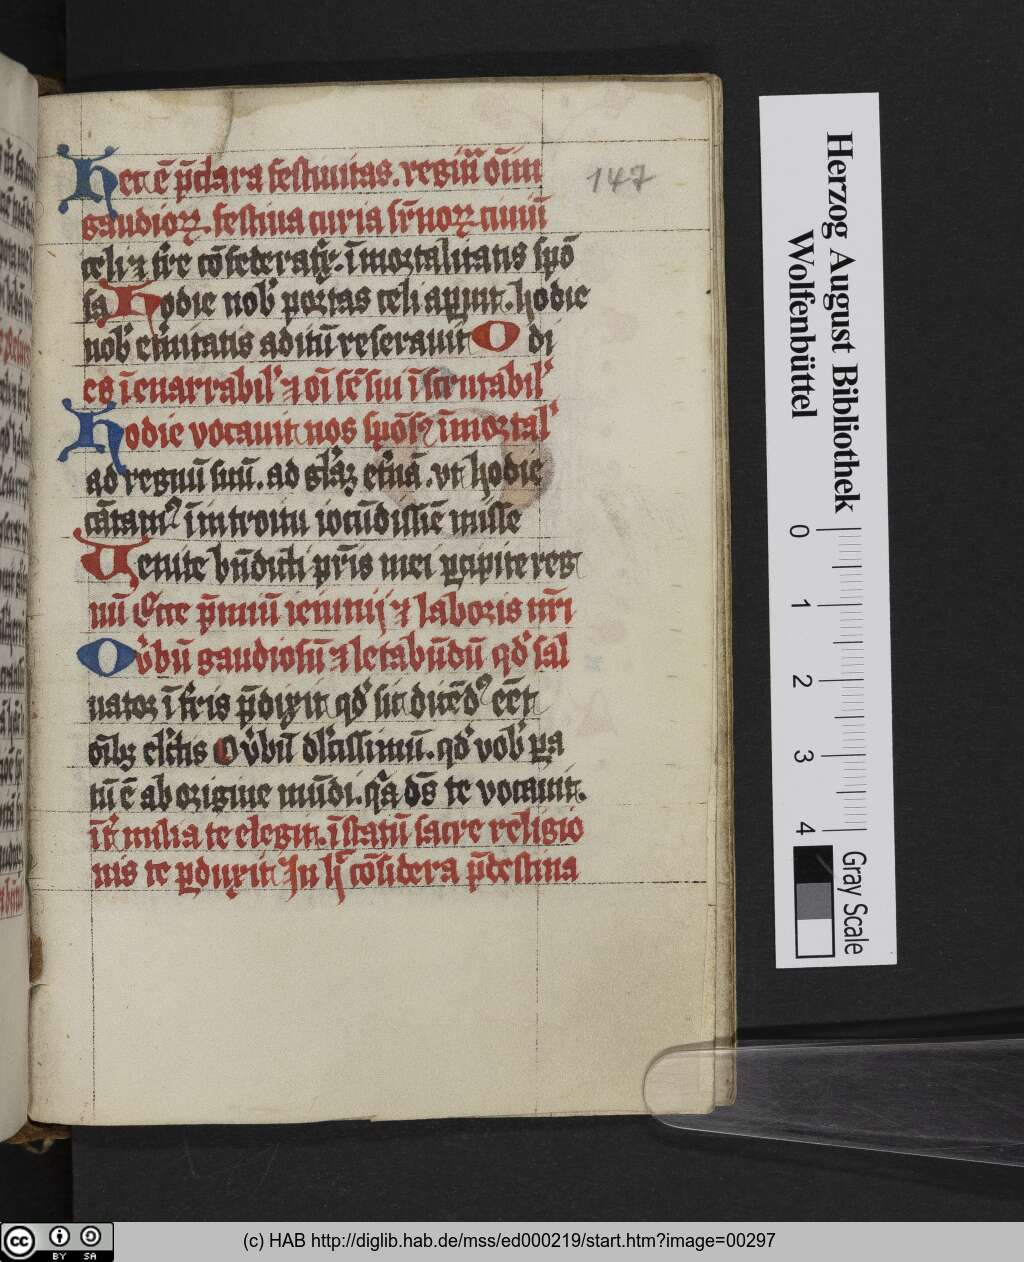 147
Hec ē p̄clara festiuitas. regiū oīm
gaudioꝝ. festiua curia sʳnoꝝ ciuiū
celi ⁊ tʳre cōfederatʳx. īmortalitatis spō
sa Hodie nobˀ portas celi apʳuit. hodie
nobˀ etʳnitatis aditū reserauit O di
es īenarrabilˀ ⁊ oī sēsui īscrutabilˀ
Hodie vocauit nos spōsꝰ īmortalˀ
ad regnū suū. ad glʳaꝫ etʳnā. vt hodie
cātamꝰ īmtroitu iocūdissīe misse
Uenite bn̄dicti pr̄is mei ꝑcipite reg
nū Ecce p̄miū ieiunij ⁊ laboris nr̄i
O vʳbū gaudiosū ⁊ letabūdū qđ sal
uator ī tʳris p̄dixit qđ sit dicēdꝰ eēt
oībꝫ elʳctis O vʳbū dlʳcissimū. qđ vobˀ ꝑa
tū ē ab origine mūdi. qʳa dꝰs te vocauit.
īt̄ milia te elegit. ī statū sacre religio
nis te ꝑduxit In hͦ cōsidera p̄destina
Herzog August Bibliothek
Wolfenbüttel
0 1 2 3 4
Gray Scale
cc BY SA
(c) HAB http://diglib.hab.de/mss/ed000219/start.htm?image=00297